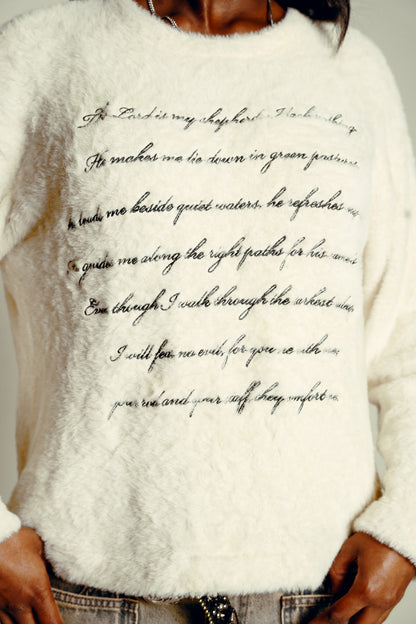 The Lord is my shepherd, I lack nothing
He makes me lie down in green pastures
he leads me beside quiet waters, he refreshes my
He guides me along the right paths for his name's
Even though I walk through the darkest valley,
I will fear no evil, for you are with me;
your rod and your staff, they comfort me.